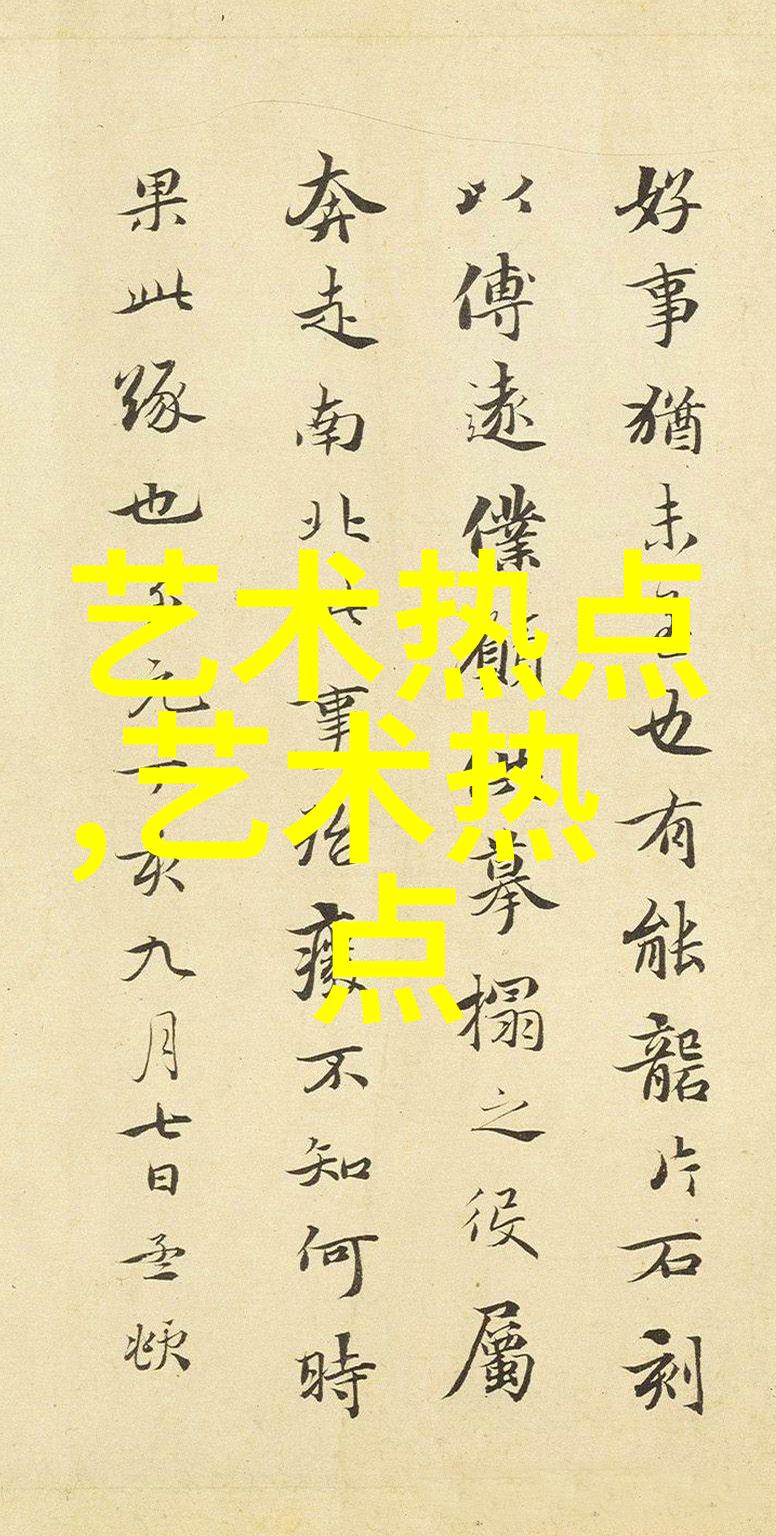 好事猶未至也有能龍石片石刻
以傳遠僕願供摹搨之役屬
奔走南北七事殆癈不知何時
果此緣也
元丁亥九月七日
艺术热点
,艺术热
点